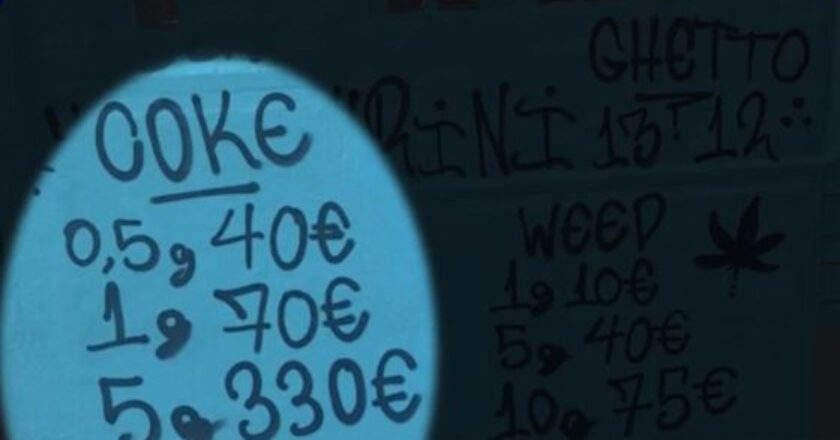 GHETTO
COKE
RiNi 13 12
0,5g 40€
1g 70€
5g 330€
WEED
1g 10€
5g 40€
10g 75€